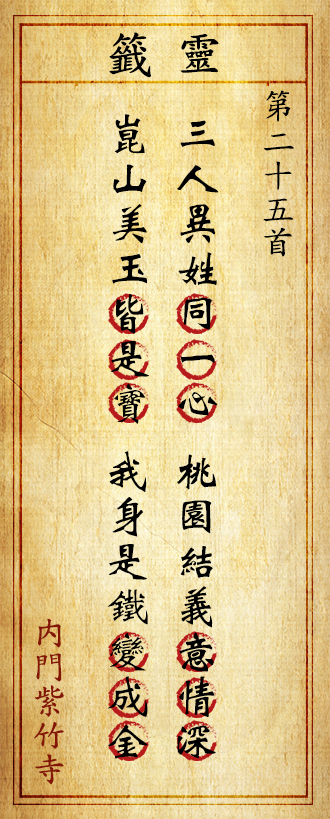 靈籤
第二十五首
三人異姓同一心 桃園結義意情深
崑山美玉皆是寶 我身是鐵變成金
內門紫竹寺